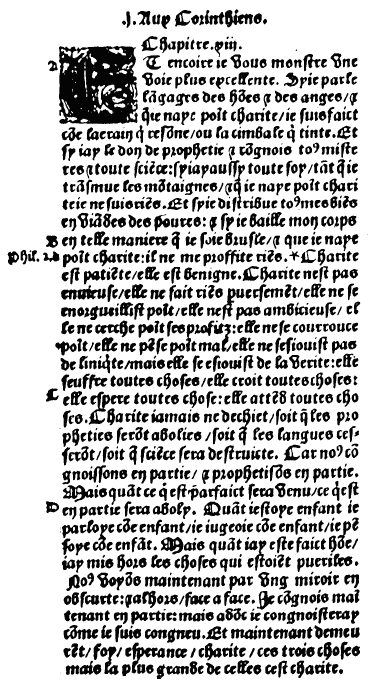 .j. Aux Corinthiens.
Chapitre.xiii.
A Et encoire ie vous monstre vne
voie plus excellente. Syie parle
lãgages des hões ⁊ des anges/⁊
que naye poît charite/ie suis faict
cõe laerain q̃ resõne/ou la cimbale q̃ tinte. Et
sy iay le don de prophetie ⁊ cõgnois toꝰ miste
res ⁊ toute sciẽce: sy iay aussy toute foy/tãt q̃ ie
trãsmue les mõtaignes/⁊ q̃ ie naye poît chari
te ie ne suis riẽs. Et sy ie distribue toꝰ mes biẽs
en viãdes des poures: ⁊ sy ie baille mon corps
B en telle maniere q̃ ie soie brusle/⁊ que ie naye
Phil. 2.d poît charite: il ne me proffite riẽs. * Charite
est patiẽte/elle est benigne. Charite nest pas
enuieuse/elle ne fait riẽs puersemẽt/elle ne se
enorgueillist poît/elle nest pas ambicieuse/el
le ne cerche poît ses profitz: elle ne se courrouce
poît/elle ne pẽse poît mal/elle ne sesiouist pas
de liniq̃te/mais elle se esiouist de la verite: elle
seuffre toutes choses/elle croit toutes choses:
C elle espere toutes chose: elle attẽd toutes cho
ses. Charite iamais ne dechiet/soit q̃ les pro
pheties serõt abolies/soit q̃ les langues ces-
serõt/soit q̃ sciẽce sera destruicte. Car noꝰ cõ
gnoissons en partie/⁊ prophetisõs en partie.
Mais quãt ce q̃ est parfaict sera venu/ce q̃ est
D en partie sera aboly. Quãt iestoye enfant ie
parloye cõe enfant/ie iugeoie cõe enfant/ie pẽ
soye cõe enfãt. Mais quãt iay este faict hõe/
iay mis hors les choses qui estoiẽt pueriles.
Noꝰ voyõs maintenant par vng miroir en
obscurte: ⁊ alhors/face a face. Ie cõgnois mai
tenant en partie: mais adõc ie congnoisteray
cõme ie suis congneu. Et maintenant demeu
rẽt/foy/esperance/charite/ces trois choses
mais la plus grande de celles cest charite.